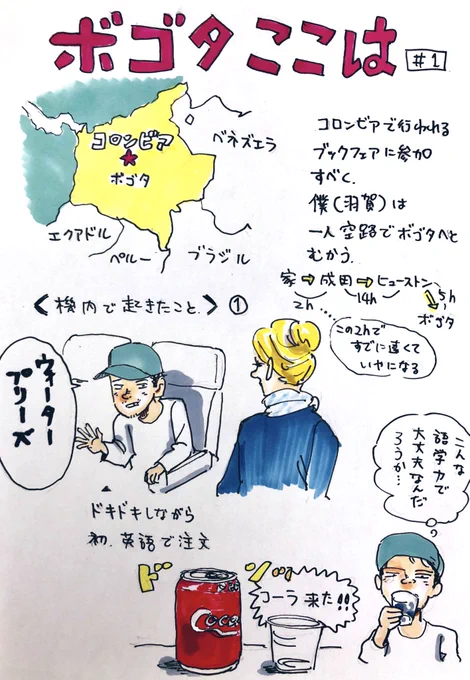 ボゴタ ここは
#1
ベネズエラ
コロンビア
ボゴタ
エクアドル
ペルー
ブラジル
コロンビアで行われる
ブックフェアに参加
すべく、
僕(羽賀)は
一人空路でボゴタへと
むかう。
家➡成田➡ヒューストン
2h
14h
5h
ボゴタ
この2hで
すでに遠くて
いやになる
<機内で起きたこと>①
ウォーター
プリーズ
ドキドキしながら
初、英語で注文
こんな
語学力で
大丈夫なんだ
ろうか…
ドンッ
コーラ来た!!